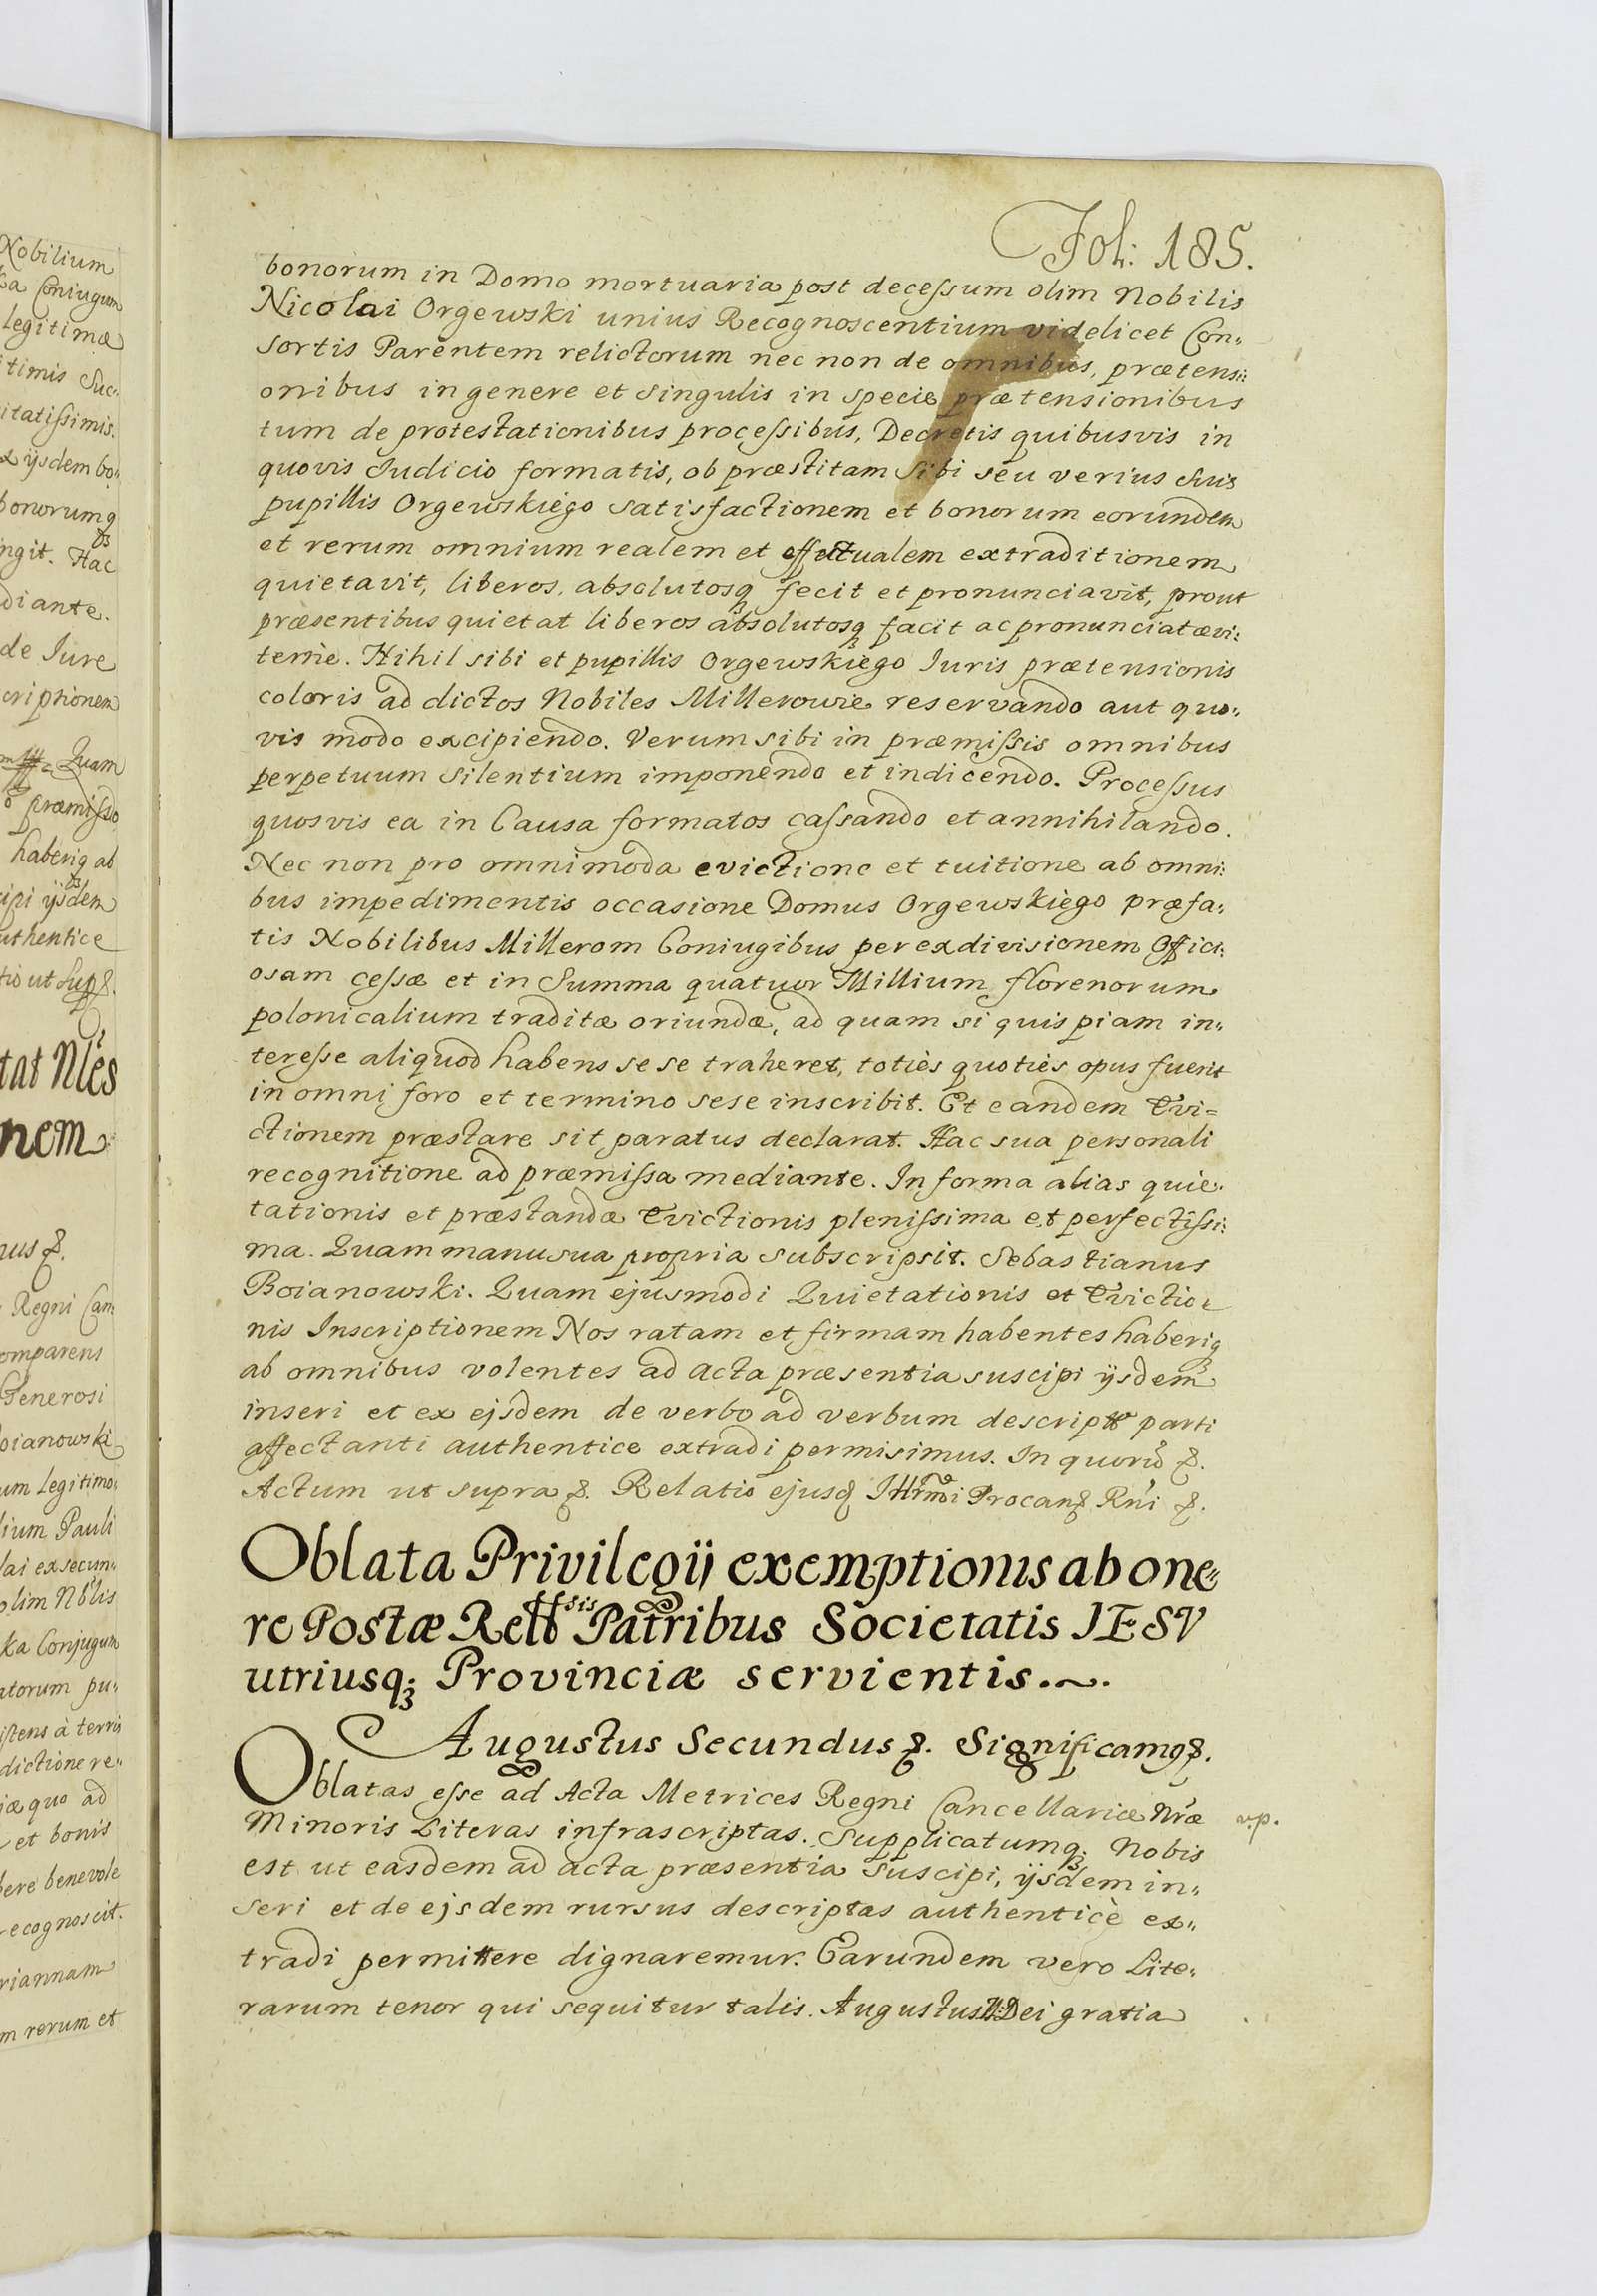 Nobilium
Coniugum
legitimæ
itimis Suc:
itatissimis.
ijsdem bo:
bonorumq
ingit. Hac
diante.
de Iure
criptionem
Quam
præmisso
haberiq ab
cipi ijsdem
uthentice
tio ut sup
tat Nles
nem
nus &.
Regni Can:
omparens
Generosi
oianowski
um legitimo:
lium Pauli
lai ex secun:
olim Nblis
ka Conjugum
atorum pu:
istens à terris
dictione re:
iæ quo ad
et bonis
bere benevole
recognoscit.
riannam
m rerum et
Fol: 185.
bonorum in Domo mortuaria post decessum olim Nobilis
Nicolai Orgewski unius Recognoscentium videlicet Con:
sortis Parentem relictorum nec non de omnibus, prætensi:
onibus in genere et singulis in specie prætensionibus
tum de protestationibus processibus, Decretis quibusvis in
quovis Iudicio formatis, ob præstitam Sibi seu verius suis
pupillis Orgewskiego satisfactionem et bonorum eorundem
et rerum omnium realem et effectualem extraditionem
quietavit, liberos, absolutosq fecit et pronunciavit, prout
præsentibus quietat liberos absolutosq facit ac pronunciat ævi:
terne. Nihil sibi et pupillis Orgewskiego Iuris prætensionis
coloris ad dictos Nobiles Millerowie reservando aut quo:
vis modo excipiendo. Verum sibi in præmissis omnibus
perpetuum silentium imponendo et indicendo. Processus
quosvis ea in Causa formatos cassando et annihilando.
Nec non pro omnimoda evictione et tuitione ab omni:
bus impedimentis occasione Domus Orgewskiego præfa:
tis Nobilibus Millerom Coniugibus per exdivisionem Offici:
osam cessæ et in Summa quatuor Millium florenorum
polonicalium traditæ oriundæ, ad quam si quispiam in:
teresse aliquod habens sese traheret, totiès quotiès opus fuerit
in omni foro et termino sese inscribit. Et eandem Evi=
ctionem præstare sit paratus declarat. Hac sua personali
recognitione ad præmissa mediante. In forma alias quie:
tationis et præstandæ Evictionis plenissima et perfectissi:
ma. Quam manu sua propria subscripsit. Sebastianus
Boianowski. Quam ejusmodi Quietationis et Evictio:
nis Inscriptionem Nos ratam et firmam habentes haberiq
ab omnibus volentes ad acta præsentia suscipi ijsdem
inseri et ex ejsdem de verbo ad verbum descriptã parti
affectanti authentice extradi permisimus. In quorũ &.
Actum ut supra &. Relatio ejusd Procan Rni &.
Oblata Privilegij exemptionis ab one:
re Postæ Patribus Societatis IESV
utriusq; Provinciæ servientis.~.
Augustus Secundus &. Significamq &.
Oblatas esse ad Acta Metrices Regni Cancellariæ Nræ
Minoris Literas infrascriptas. Supplicatumq; Nobis
est ut easdem ad acta præsentia suscipi, ijsdem in:
seri et de ejsdem rursus descriptas authenticè ex:
tradi permittere dignaremur. Earundem vero Lite:
rarum tenor qui sequitur talis. Augustus II Dei gratia